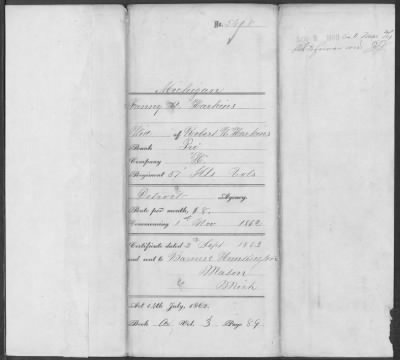 No. 5898
Michigan
Fanny H. Harkins
Wid of Robert W. Harkins
Rank Pri
Company "K"
Regiment 87" Ills Vols
Detroit Agency.
Rate per month, $8.
Commencing 1st Nov 1862
Certificate dated 2d Sept 1863
and sent to Barnes Huntington
Mason
Mich
Act 14th July, 1862.
Book A Vol. 3 Page 89